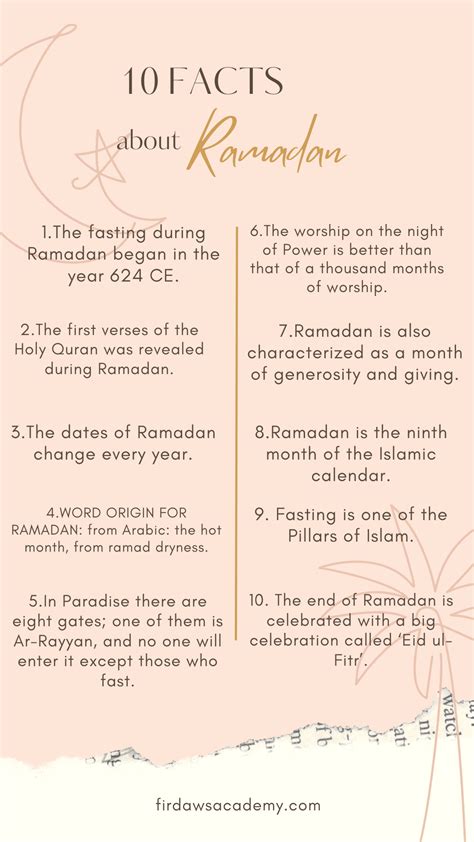 10 FACTS
about Ramadan
1.The fasting during
Ramadan began in the
year 624 CE.
2.The first verses of the
Holy Quran was revealed
during Ramadan.
3.The dates of Ramadan
change every year.
4.WORD ORIGIN FOR
RAMADAN: from Arabic: the hot
month, from ramad dryness.
5.In Paradise there are
eight gates; one of them is
Ar-Rayyan, and no one will
enter it except those who
fast.
6.The worship on the night
of Power is better than
that of a thousand months
of worship.
7.Ramadan is also
characterized as a month
of generosity and giving.
8.Ramadan is the ninth
month of the Islamic
calendar.
9. Fasting is one of the
Pillars of Islam.
10. The end of Ramadan is
celebrated with a big
celebration called ‘Eid ul-
Fitr’.
firdawsacademy.com